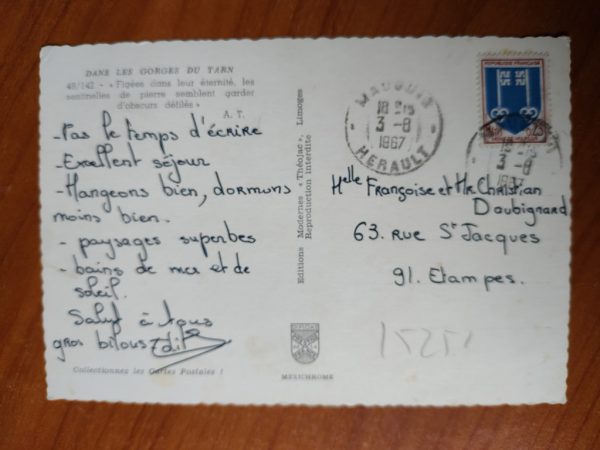 DANS LES GORGES DU TARN
48/142 - « Figées dans leur éternité, les
sentinelles de pierre semblent garder
d'obscurs défilés »
A. T.
- Pas le temps d'écrire
- Excellent séjour
- Mangeons bien, dormons
moins bien.
- paysages superbes
- bains de mer et de
soleil.
Salut à tous
gros bisous Edith
Collectionnez les Cartes Postales !
Editions Modernes « Théojac », Limoges
Reproduction interdite
MEXICHROME
REPUBLIQUE FRANÇAISE
0,25
MAUGUIO
18H15
3-8
1967
HERAULT
18H15
3-8
1967
Melle Françoise et Mr Christian
Daubignard
63. rue St Jacques
91. Etampes.